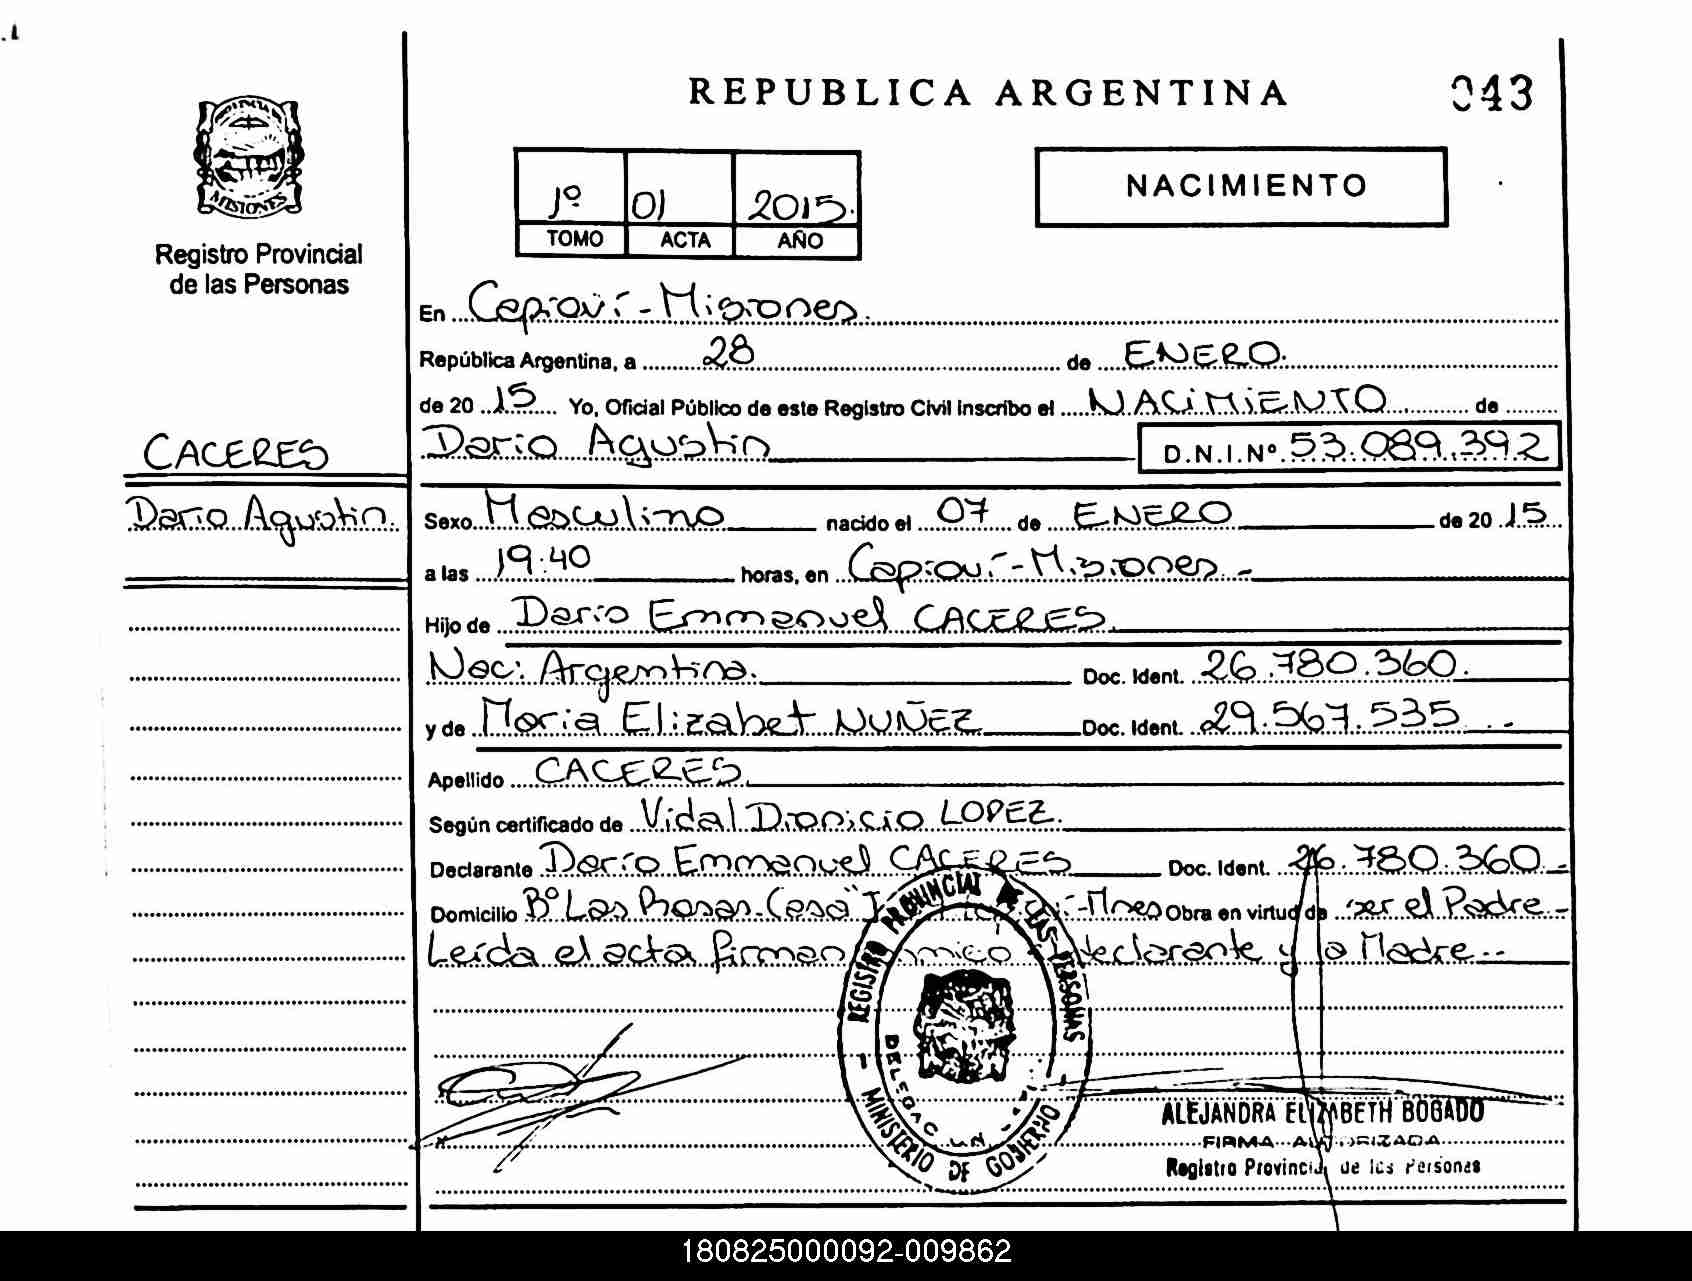 REPUBLICA ARGENTINA
043
MISIONES
Registro Provincial
de las Personas
1º 01 2015.
TOMO ACTA AÑO
NACIMIENTO
En Capioví - Misiones.
República Argentina, a 28 de ENERO.
de 20 15 Yo, Oficial Público de este Registro Civil inscribo el NACIMIENTO de
CACERES
Dario Agustin
Dario Agustin D.N.I.Nº 53.089.392
Sexo Masculino nacido el 07 de ENERO de 20 15
a las 19:40 horas, en Capioví - Misiones. -
Hijo de Dario Emmanuel CACERES.
Nac: Argentina. Doc. Ident. 26.780.360.
y de Maria Elizabet NUÑEZ Doc. Ident. 29.567.535
Apellido CACERES.
Según certificado de Vidal Dionicio LOPEZ.
Declarante Darío Emmanuel CACERES Doc. Ident. 26.780.360 -
Domicilio Bº Las Rosas - Casa - Mnes Obra en virtud de ser el Padre -
Leída el acta firman declarante y la Madre --
REGISTRO PROVINCIAL DE LAS PERSONAS
MINISTERIO DE GOBIERNO
ALEJANDRA ELIZABETH BOGADO
FIRMA AUTORIZADA
Registro Provincial de las Personas
180825000092-009862